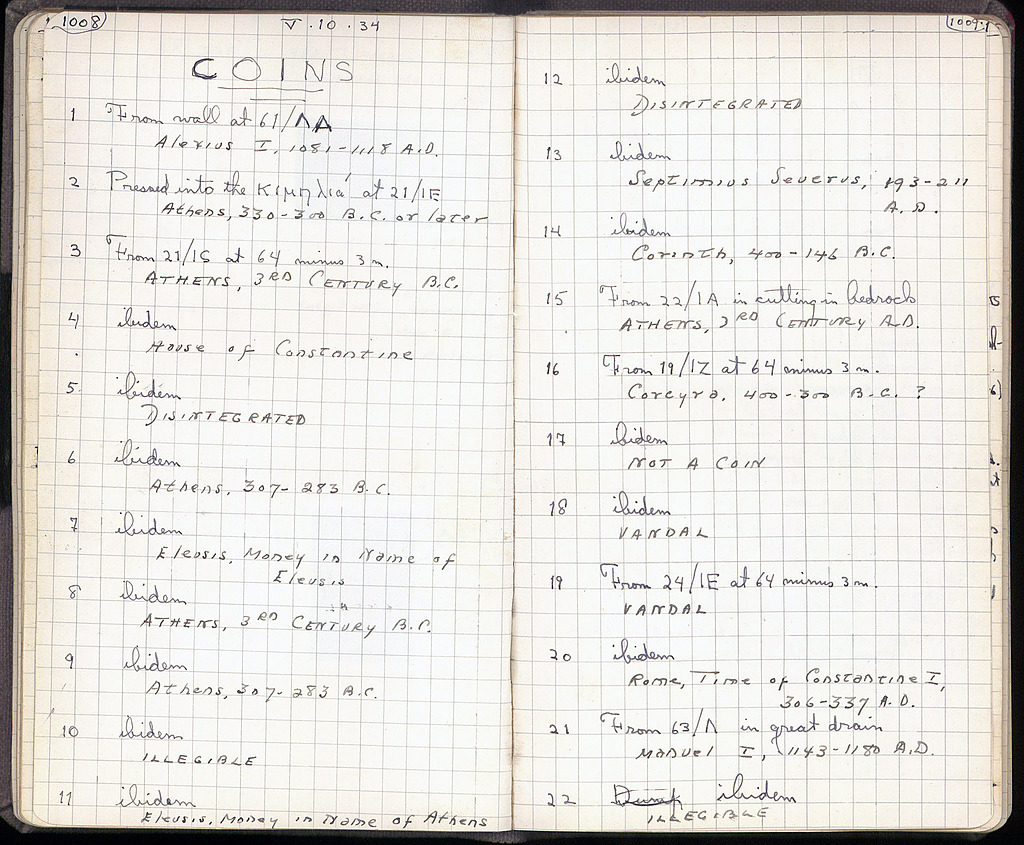 1008
V.10.34
COINS
1 From wall at 61/ΛΑ
Alexius I, 1081-1118 A.D.
2 Pressed into the κιμηλιά at 21/ΙΕ
Athens, 330-300 B.C. or later
3 From 21/ΙS at 64 minus 3 m.
ATHENS, 3RD CENTURY B.C.
4 ibidem
House of Constantine
5 ibidem
DISINTEGRATED
6 ibidem
Athens, 307-283 B.C.
7 ibidem
Eleusis, Money in Name of
Eleusis
8 ibidem
ATHENS, 3RD CENTURY B.C.
9 ibidem
Athens, 307-283 B.C.
10 ibidem
ILLEGIBLE
11 ibidem
Eleusis, Money in Name of Athens
1009
12 ibidem
DISINTEGRATED
13 ibidem
Septimius Severus, 193-211
A.D.
14 ibidem
Corinth, 400-146 B.C.
15 From 22/ΙΑ in cutting in bedrock
ATHENS, 3RD CENTURY A.D.
16 From 19/ΙΖ at 64 minus 3 m.
Corcyra. 400-300 B.C. ?
17 ibidem
NOT A COIN
18 ibidem
VANDAL
19 From 24/ΙΕ at 64 minus 3 m.
VANDAL
20 ibidem
Rome, Time of Constantine I,
306-337 A.D.
21 From 63/Λ in great drain
Manuel I, 1143-1180 A.D.
22 ibidem
ILLEGIBLE